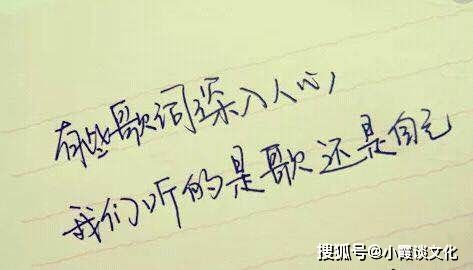 有些歌词深入人心，
我们听的是歌还是自己
搜狐号@小霞谈文化